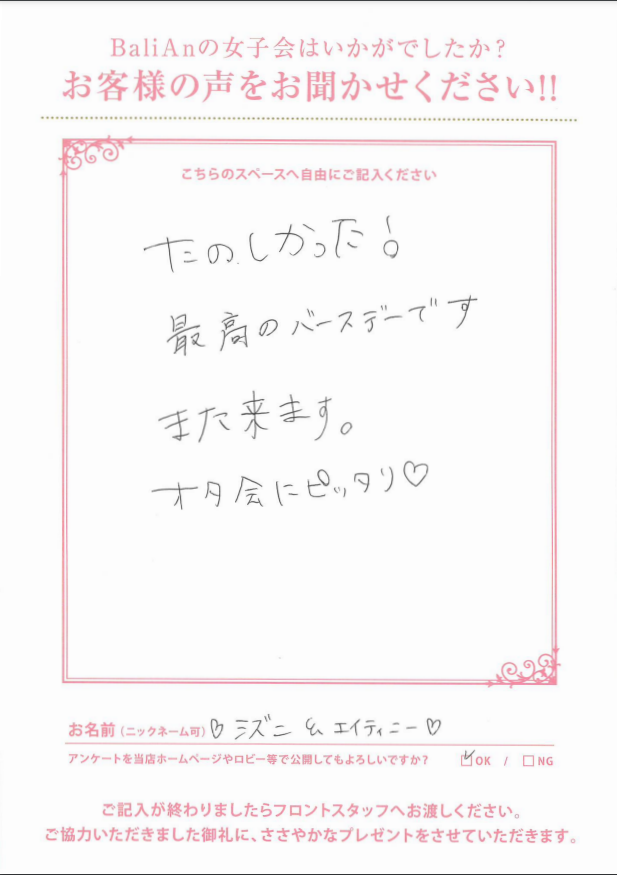 BaliAnの女子会はいかがでしたか？
お客様の声をお聞かせください!!
こちらのスペースへ自由にご記入ください
たのしかった！
最高のバースデーです
また来ます。
オタ会にピッタリ♡
お名前（ニックネーム可）♡ミズニ & エイティニー♡
アンケートを当店ホームページやロビー等で公開してもよろしいですか？ ☑OK / □NG
ご記入が終わりましたらフロントスタッフへお渡しください。
ご協力いただきました御礼に、ささやかなプレゼントをさせていただきます。